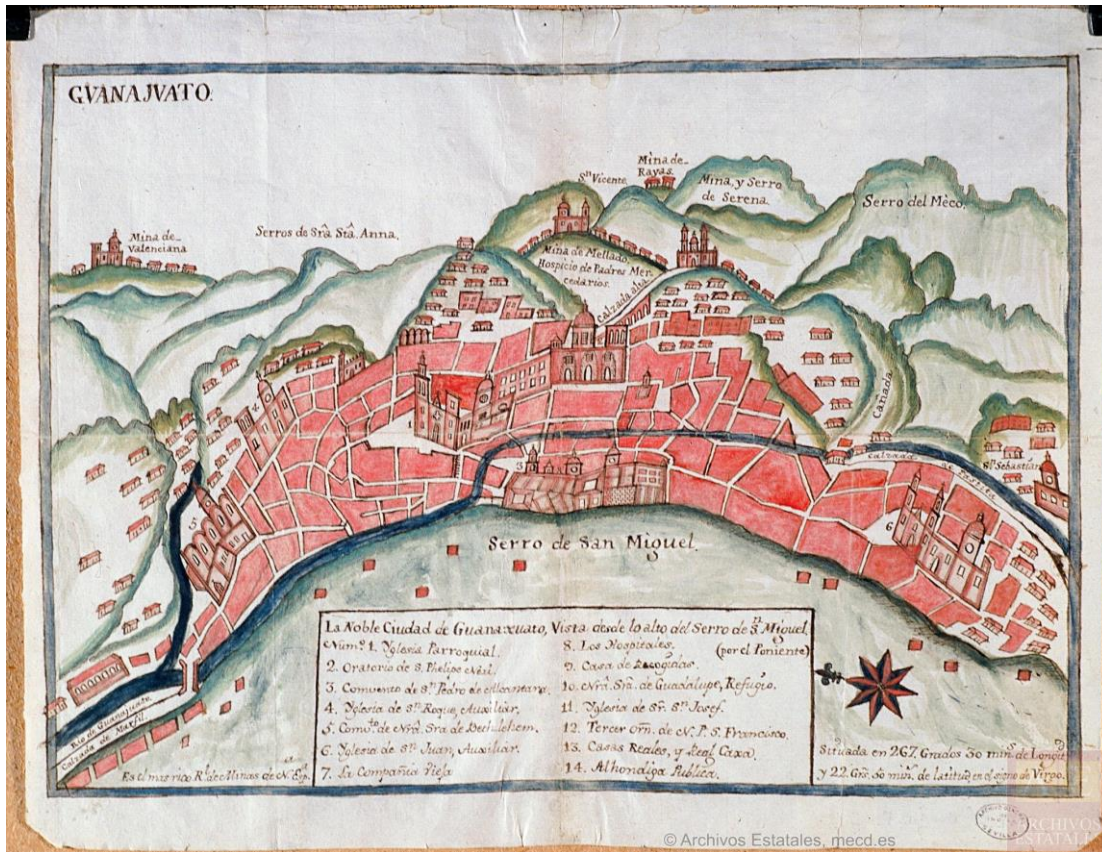 GVANAJVATO.
Mina de
Valenciana
Serros de Srâ Stâ. Anna.
Sn Vicente
Mina de
Rayas.
Mina, y Serro
de Serena.
Serro del Mèco.
Mina de Mellado,
Hospicio de Padres Mer-
cedarios.
Calzada alta
Cañada
Calzada de
Sn Sebastian
1
3
4
5
6
Serro de San Miguel.
Rio de Guanajuato
Calzada de Marfil
Es el mas rico Rl. de Minas de N. Esp.
La Noble Ciudad de Guanaxuato, Vista desde lo alto del Serro de Sn. Miguel.
(por el Poniente)
Num.o 1. Yglesia Parroquial.
2. Oratorio de S. Phelipe Neri.
3. Comvento de Sn. Pedro de Alcantara.
4. Yglesia de Sn. Roque, Auxiliar.
5. Comv.to de Nrâ. Sra de Bethlehem.
6. Yglesia de Sn. Juan, Auxiliar.
7. La Compañia Vieja
8. Los Hospitales.
9. Casa de Recogidas.
10. Nrâ. Srâ. de Guadalupe, Refugio.
11. Yglesia de Sr. Sn. Josef.
12. Tercer orn. de N. P. S. Francisco.
13. Casas Reales, y Real Caxa.
14. Alhondiga Publica.
Situada en 267 Grados 30 mins. de Longit
y 22 Grs. 50 min. de latitud en el signo de Virgo.
© Archivos Estatales, mecd.es
ARCHIVOS
ESTATALES